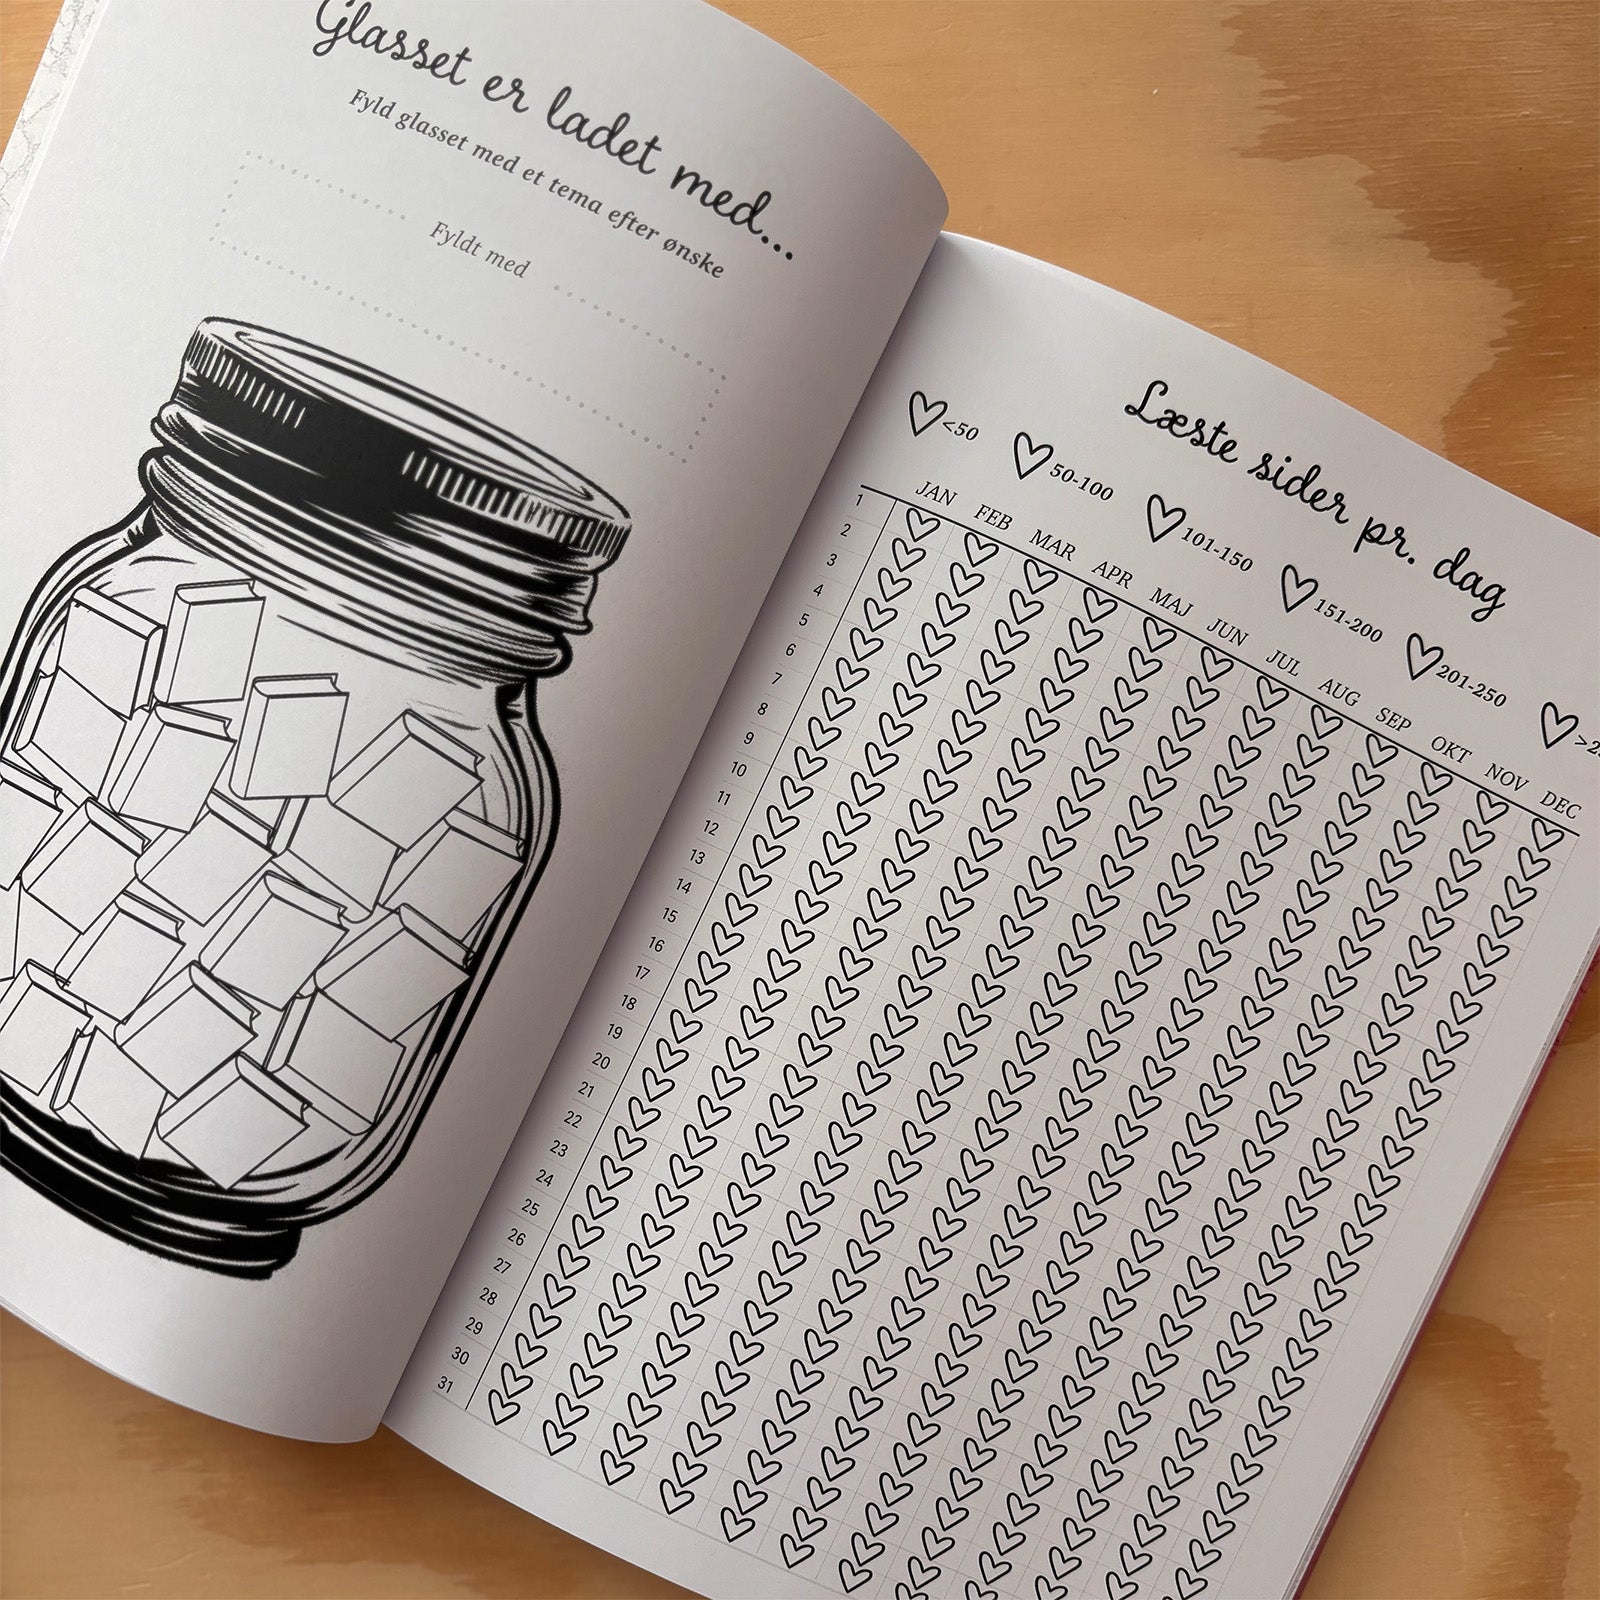 Glasset er ladet med...
Fyld glasset med et tema efter ønske
Fyldt med
Læste sider pr. dag
<50 50-100 101-150 151-200 201-250
JAN FEB MAR APR MAJ JUN JUL AUG SEP OKT NOV DEC
1
2
3
4
5
6
7
8
9
10
11
12
13
14
15
16
17
18
19
20
21
22
23
24
25
26
27
28
29
30
31